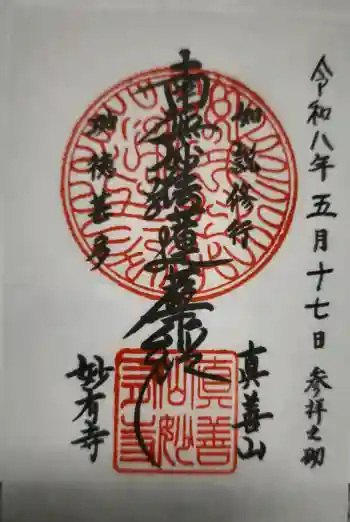 令和八年五月十七日 参拝之砌
如説修行
南無妙法蓮華経
功徳甚多
真善山
妙有寺